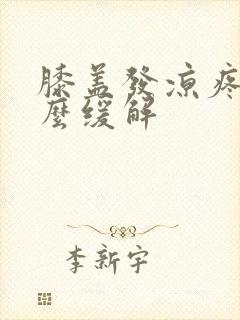 膝盖發凉疼
麽缓解
李新宇